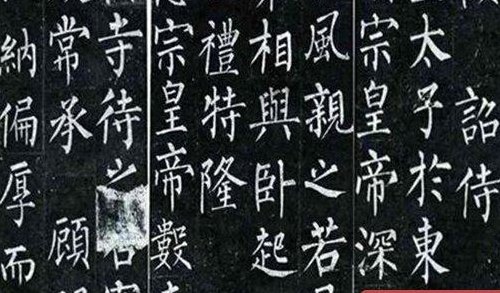 詔侍
太子於東
宗皇帝深
風親之若
相與卧起
禮特隆
宗皇帝數
寺待之
常承 顧
納偏厚而